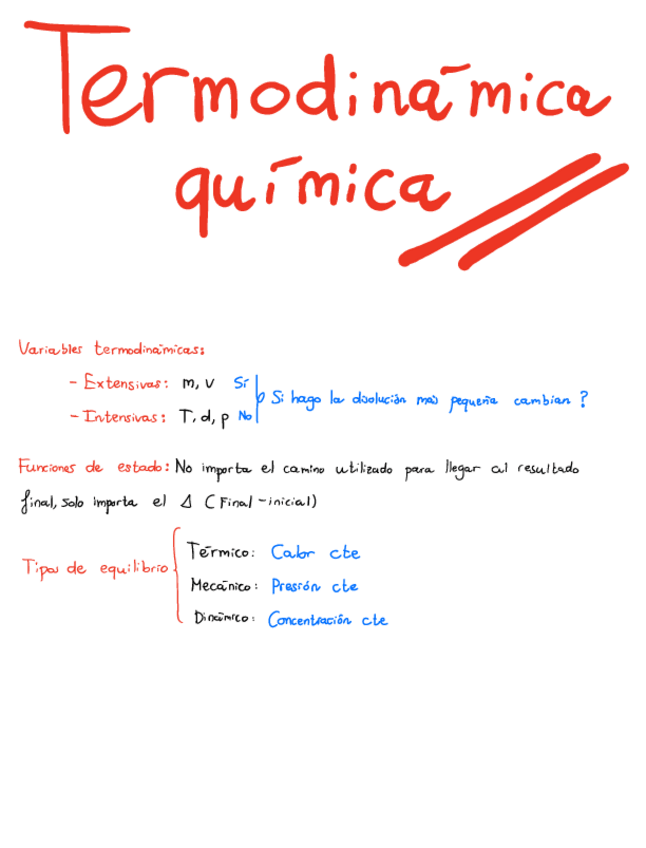 Termodinámica
química
Variables termodinámicas:
- Extensivas: m, v Sí
Si hago la disolución más pequeña cambian?
- Intensivas: T, d, p No
Funciones de estado: No importa el camino utilizado para llegar al resultado
final, solo importa el Δ (Final-inicial)
Tipos de equilibrio
Térmico: Calor cte
Mecánico: Presión cte
Dinámico: Concentración cte